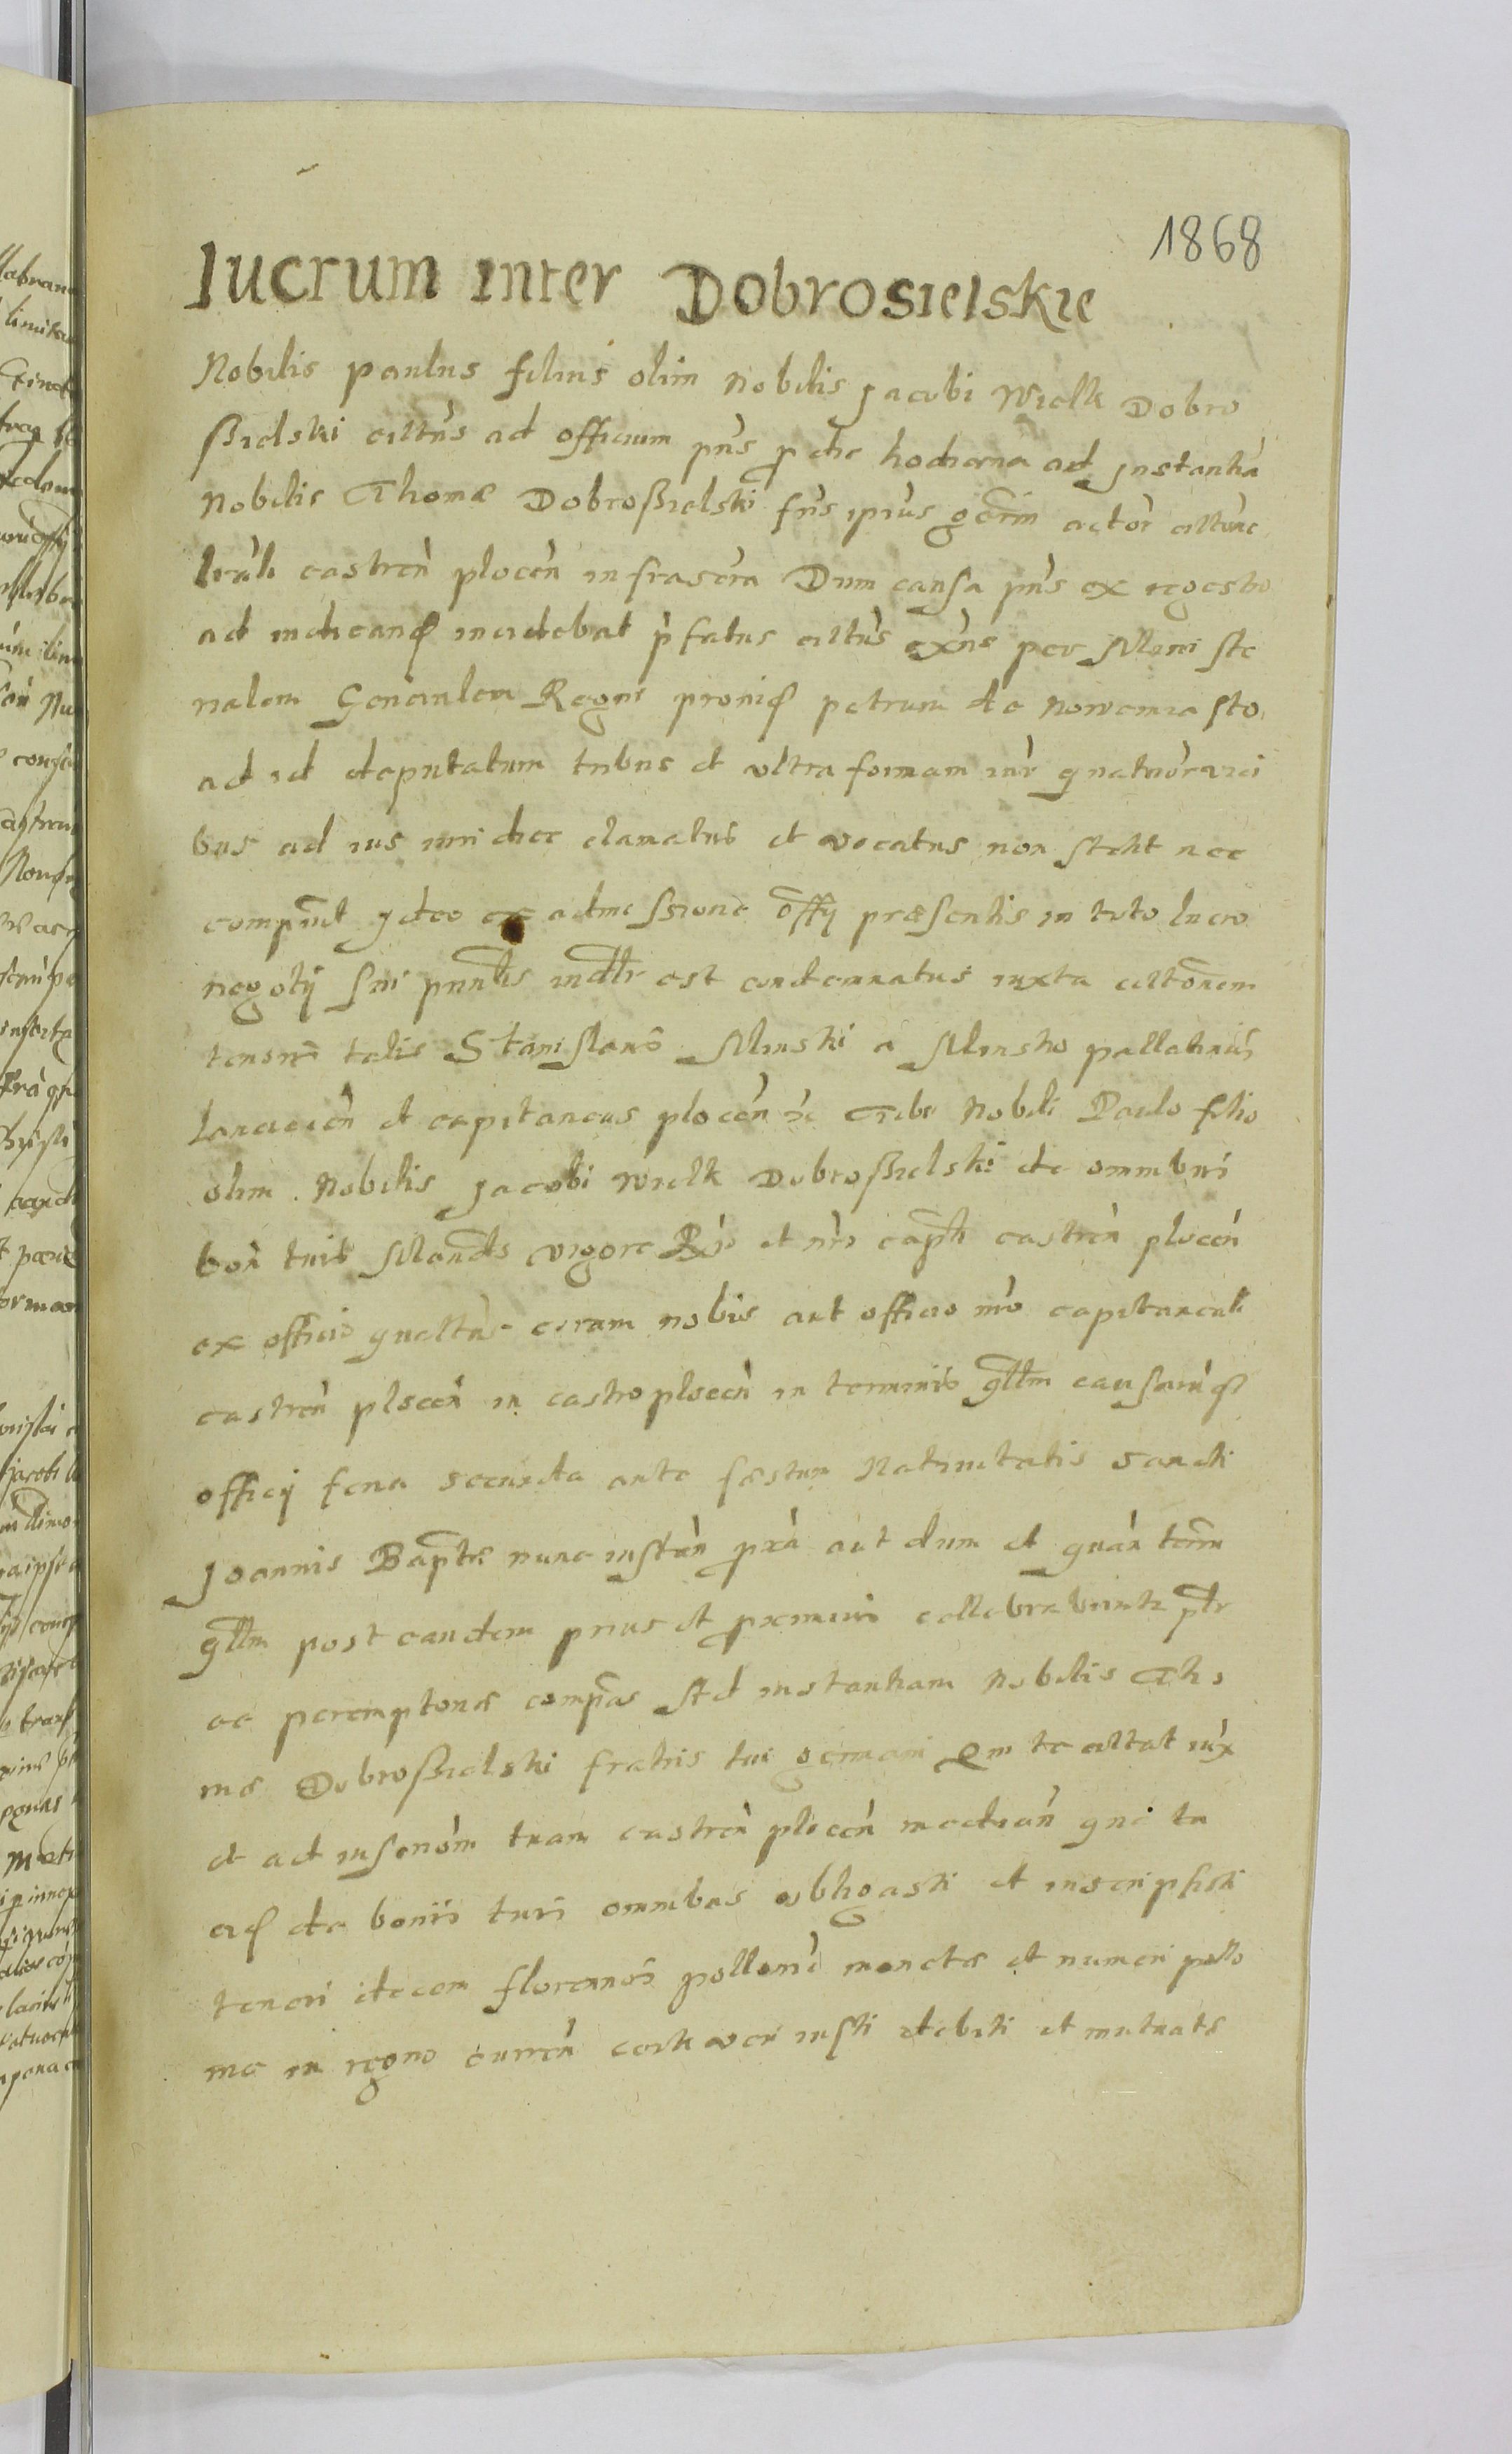 1868
lucrum inter Dobrosielskie
Nobilis paulus filius olim Nobilis Jacobi Wielk Dobro
ßielski cittus ad officium pns p die hodierna ad Instantia
Nobilis Thomæ Dobroßielski fris ipius germ actor cittone
lrali castren plocen infrascrta Dum causa pns ex regestro
ad iudicand incidebat pfatus cittus exns per Mini ste
rialem Generalem Regni provid petrum de Nowemiasto
ad id deputatum tribus et ultra formam iur quatuor vici
bus ad ius iuridice clamatus et vocatus non stetit nec
comparuit Ideo ex admissione offy præsentis in toto lucro
negotij sui pnntis indtr est condemnatus iuxta cittonem
tenoris talis Stanislaus Minski a Minsko pallatinus
Lancicien et capitaneus plocen ic Tibi Nobili Paulo filio
olim Nobilis Jacobi Wielk Dobroßielski de omnibus
bon tuis Mandts vigore Rio et nro capti castren plocen
ex officio quattus coram nobis aut officio nro capitaneali
castren plocen in castro plocen in terminis qllm causarum
officij feria secunda ante fæstum Nativitatis sancti
Joannis Baptæ nunc instan pxa aut dum et quan term
qllm post eandem prius et pximius cellebrabuntr ptr
ac peremptorie compas Ad instantiam Nobilis Tho
mæ Dobroßielski fratris tui germani Qui te cittat iux
et ad inscrioem tuam castren plocen median qua tu
eid de bonis tuis omnibus obligasti et inscripsisti
teneri decem florenos pollonic monetæ et numeri pollo
nic in regno curren certi veri iusti debiti et mutuati